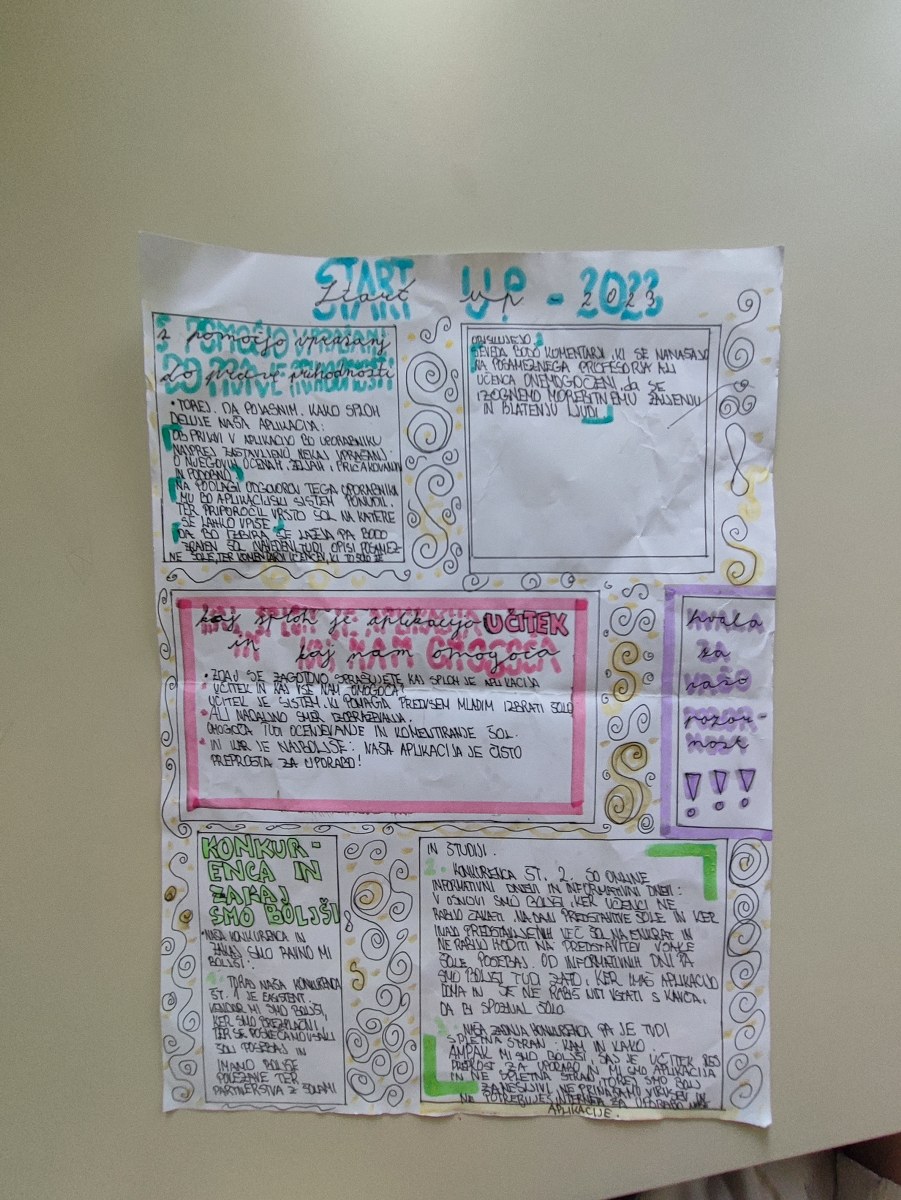 START UP - 2023
S POMOČJO VPRAŠANJ
DO PRAVE PRIHODNOSTI
• TOREJ, DA POJASNIM, KAKO SPLOH
DELUJE NAŠA APLIKACIJA:
OB PRIJAVI V APLIKACIJO BO UPORABNIKU
NAJPREJ ZASTAVLJENO NEKAJ VPRAŠANJ
O NJEGOVIH OCENAH, ŽELJAH, PRIČAKOVANJIH
IN PODOBNO.
NA PODLAGI ODGOVOROV TEGA UPORABNIKA
MU BO APLIKACIJSKI SISTEM PONUDIL
TER PRIPOROČIL VRSTO ŠOL NA KATERE
SE LAHKO VPIŠE.
DA BO IZBIRA ŠE LAŽJA PA BODO
ZRAVEN ŠOL NAVEDENI TUDI OPISI POSAMEZ-
NE ŠOLE, TER KOMENTARJI UČENCEV, KI TO ŠOLO ŽE
OBISKUJEJO.
SEVEDA BODO KOMENTARJI, KI SE NANAŠAJO
NA POSAMEZNEGA PROFESORJA ALI
UČENCA ONEMOGOČENI, da SE
IZOGNEMO MOREBITNEMU ŽALJENJU
IN BLATENJU LJUDI.
kaj sploh je aplikacija UČITEK
in kaj nam omogoča
• ZDAJ SE ZAGOTOVO SPRAŠUJETE KAJ SPLOH JE APLIKACIJA
UČITEK IN KAJ VSE NAM OMOGOČA?
UČITEK JE SISTEM, KI POMAGA PREDVSEM MLADIM IZBRATI ŠOLO
ALI NADALJNO SMER IZOBRAŽEVANJA.
OMOGOČA TUDI OCENJEVANJE IN KOMENTIRANJE ŠOL.
• IN KAR JE NAJBOLJŠE: NAŠA APLIKACIJA JE ČISTO
PREPROSTA ZA UPORABO!
hvala
za
vašo
pozor-
nost
!!!
KONKUR-
ENCA IN
ZAKAJ
SMO BOLJŠI
• NAŠA KONKURENCA IN
ZAKAJ SMO RAVNO MI
BOLJŠI:
TOREJ NAŠA KONKURENCA
ŠT. 1 JE
VENDAR MI SMO BOLJŠI,
KER SMO BREZPLAČNI,
TER SE POSVEČAMO VSAKI
ŠOLI POSEBAJ IN
IMAMO BOLJŠE
POVEZANJE TER
PARTNERSTVA Z ŠOLAMI
IN ŠTUDIJI.
2. KONKURENCA ŠT. 2. SO ONLINE
INFORMATIVNI DNEVI IN INFORMATIVNI DNEVI:
V OSNOVI SMO BOLJŠI, KER UČENCI NE
RABIJO ČAKATI NA DAN PREDSTAVITVE ŠOLE IN KER
IMAJO PREDSTAVLJENIH VEČ ŠOL NA ENKRAT IN
NE RABIJO HODITI NA PREDSTAVITEV VSAKE
ŠOLE POSEBAJ. OD INFORMATIVNIH DNI PA
SMO BOLJŠI TUDI ZATO, KER IMAŠ APLIKACIJO
DOMA IN SE NE RABIŠ NITI VSTATI S KAVČA,
DA BI SPOZNAL ŠOLO.
3. NAŠA ZADNJA KONKURENCA PA JE TUDI
SPLETNA STRAN: KAM IN KAKO
AMPAK MI SMO BOLJŠI, SAJ JE UČITEK BOLJ
PREPROST ZA UPORABO IN MI SMO APLIKACIJA
IN NE SPLETNA STRAN, TOREJ SMO BOLJ
ZANESLJIVI, NE PRINAŠAMO VIRUSEV IN
NE POTREBUJEŠ INTERNETA ZA UPORABO NAŠE
APLIKACIJE.